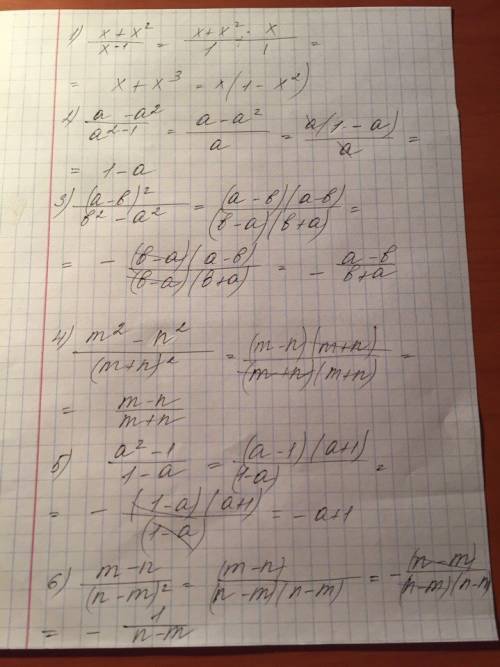 1) (x + x²)/(x⁻¹) = (x + x²)/1 · x/1 =
= x + x³ = x(1 - x²)
2) (a - a²)/(a²⁻¹) = (a - a²)/a = a(1 - a)/a =
= 1 - a
3) (a-b)²/(b² - a²) = (a-b)(a-b)/(b-a)(b+a) =
= - (b-a)(a-b)/(b-a)(b+a) = - (a-b)/(b+a)
4) (m² - n²)/(m+n)² = (m-n)(m+n)/(m+n)(m+n) =
= (m-n)/(m+n)
5) (a² - 1)/(1-a) = (a-1)(a+1)/(1-a) =
= - (1-a)(a+1)/(1-a) = - a+1
6) (m-n)/(n-m)² = (m-n)/(n-m)(n-m) = - (n-m)/(n-m)(n-m)
= - 1/(n-m)